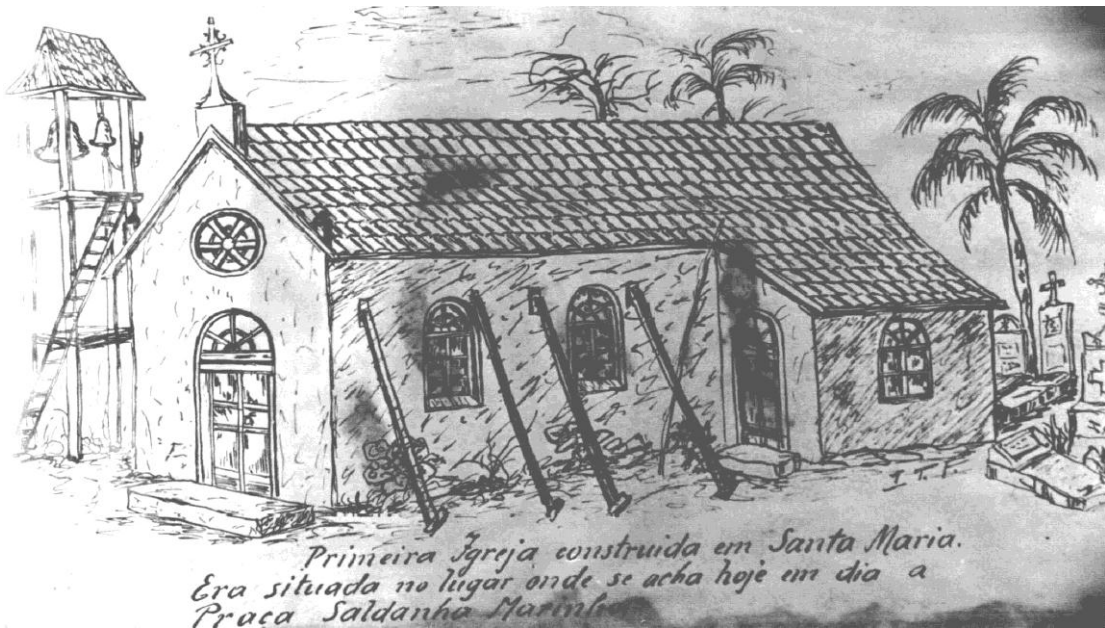 I. T. F.
Primeira Igreja construida em Santa Maria.
Era situada no lugar onde se acha hoje em dia a
Praça Saldanha Marinho